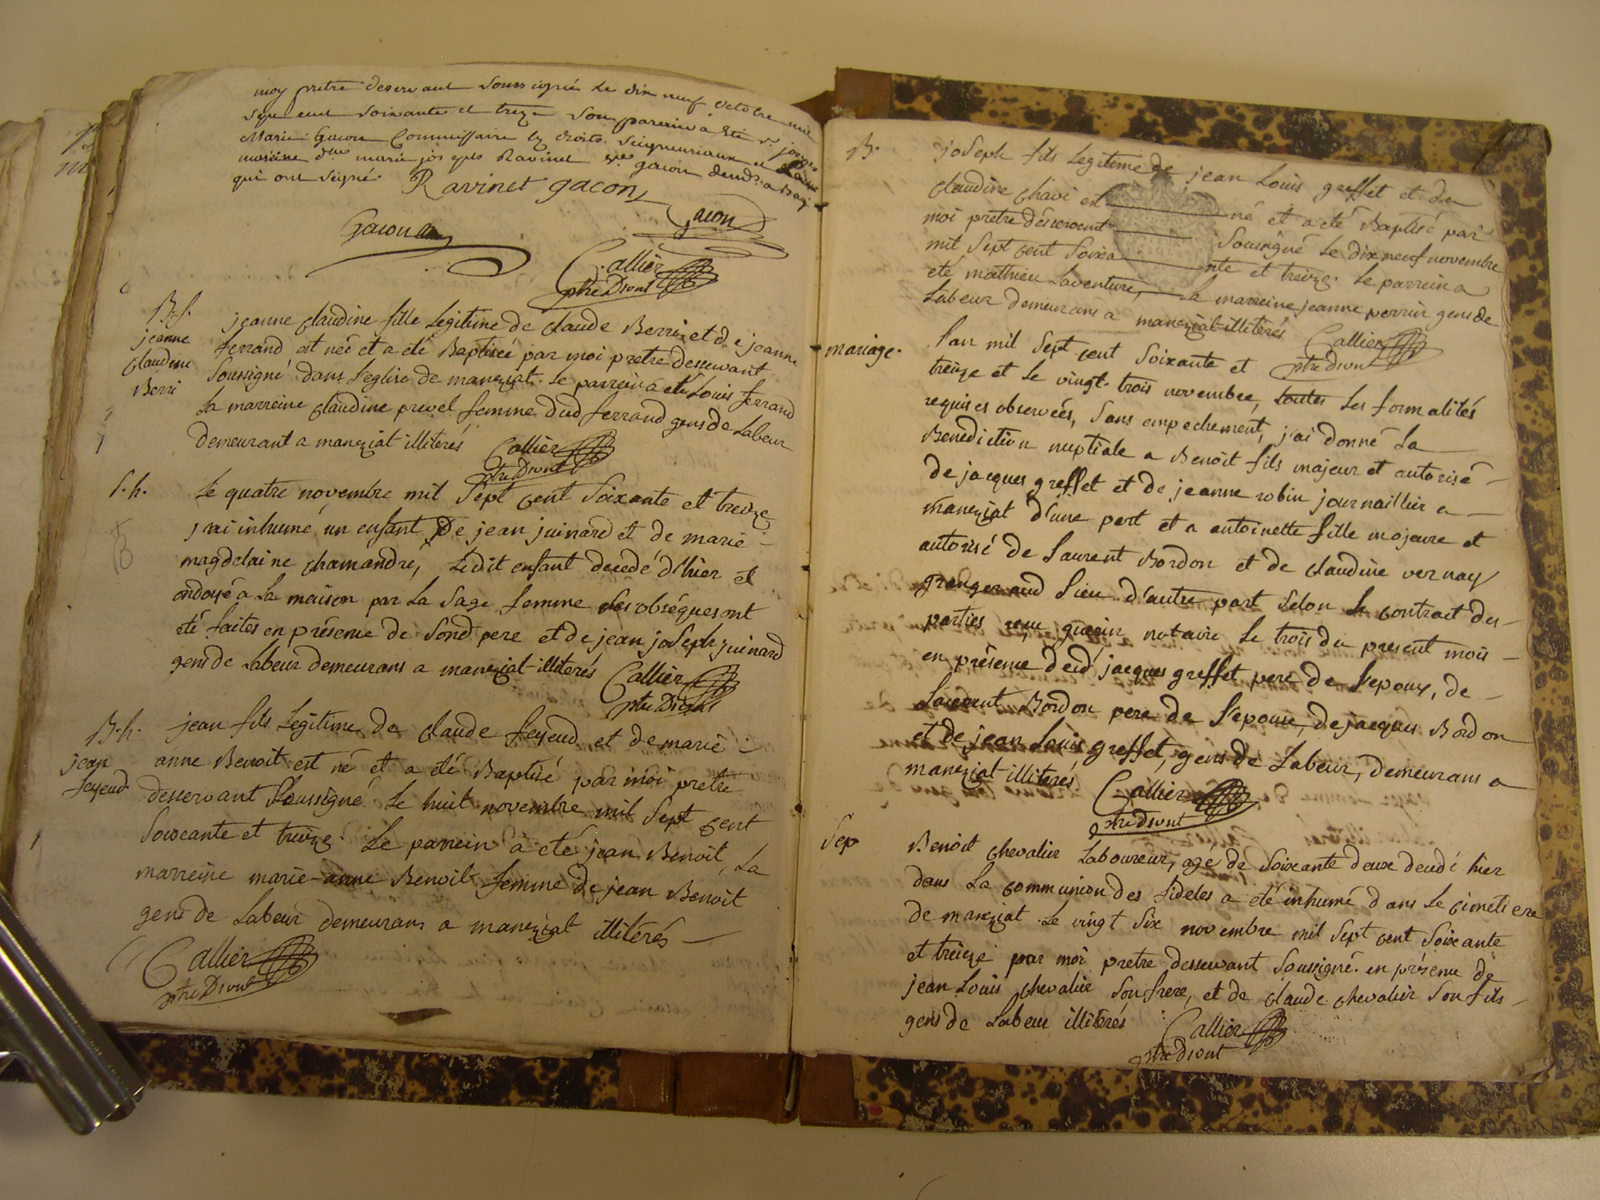 moy pretre deservant soussigné le dix neuf octobre mil
sept cent soixante et treze son parrain a été sr
Marie Gacon Commissaire es droits seigneuriaux et la
maraine dlle marie josephe Ravinet gacon
qui ont signé Ravinet gacon
Gacon
Gacon
Callier
ptre Dsvnt
B. f.
jeanne
claudine
Berri
jeanne claudine fille Legitime de claude Berri et de jeanne
ferrand est née et a été Baptisée par moi pretre desservant
soussigné dans l'église de manziat. Le parrein a été Louis ferrand
La marreine claudine prevel femme dud ferrand gens de Labeur
demeurant a manziat illiterés Callier
ptre Dsvnt
S. h.
Le quatre novembre mil Sept cent Soixante et treize
j'ai inhumé un enfant De jean juinard et de marie
magdelaine chamandré, Ledit enfant decedé d'hier et
ondoyé a La maison par La Sage femme Les obséques ont
été faites en présence de Sond pere et de jean joseph juinard
gens de Labeur demeurans a manziat illiterés Callier
ptre Dsvnt
B. h.
jean
feyeud
jean fils Légitime de claude feyeud et de marie
anne Benoit est né et a été Baptisé par moi pretre
desservant Soussigné Le huit novembre mil Sept cent
Soixante et treize. Le parrein a été jean Benoit, La
marreine marie anne Benoit femme de jean Benoit
gens de Labeur demeurans a manziat illitérés
Callier
ptre Dsvnt
B.
joseph fils Legitime de jean Louis greffet et de
claudine chavi est né et a été Baptisé par
moi pretre désservent Soussigné Le dix neuf novembre
mil Sept cent Soixante et treize. Le parrein a
été mathieu Laventure, La marreine jeanne perrin gens de
Labeur demeurans a manziat illiterés Callier
ptre Dsvnt
mariage.
L'an mil Sept cent Soixante et
treize et Le vingt-trois novembre, toutes Les formalités
requises observées, Sans empechement, j'ai donné La
Benediction nuptiale a Benoît fils majeur et autorisé
de jacques greffet et de jeanne robin journaillier a
manziat d'une part et a antoinette fille majeure et
autorisé de Laurent Bordon et de claudine vernay
granger aud Lieu d'autre part Selon Le contract des
parties reçu guerin notaire Le trois du present mois
en présence dud jacques greffet pere de l'epoux, de
Laurent Bordon pere de l'epouse, de jacques Bordon
et de jean Louis greffet, gens de Labeur, demeurans a
manziat illiterés Callier
ptre Dsvnt
Sep
Benoit chevalier Laboureur, age de Soixante deux decedé hier
dans La communion des fideles a été inhumé dans Le cimetiere
de manziat Le vingt Six novembre mil Sept cent Soixante
et treize par moi pretre desservant Soussigné en présence de
jean Louis chevalier Son frere, et de claude chevalier Son fils
gens de Labeur illitérés Callier
ptre Dsvnt